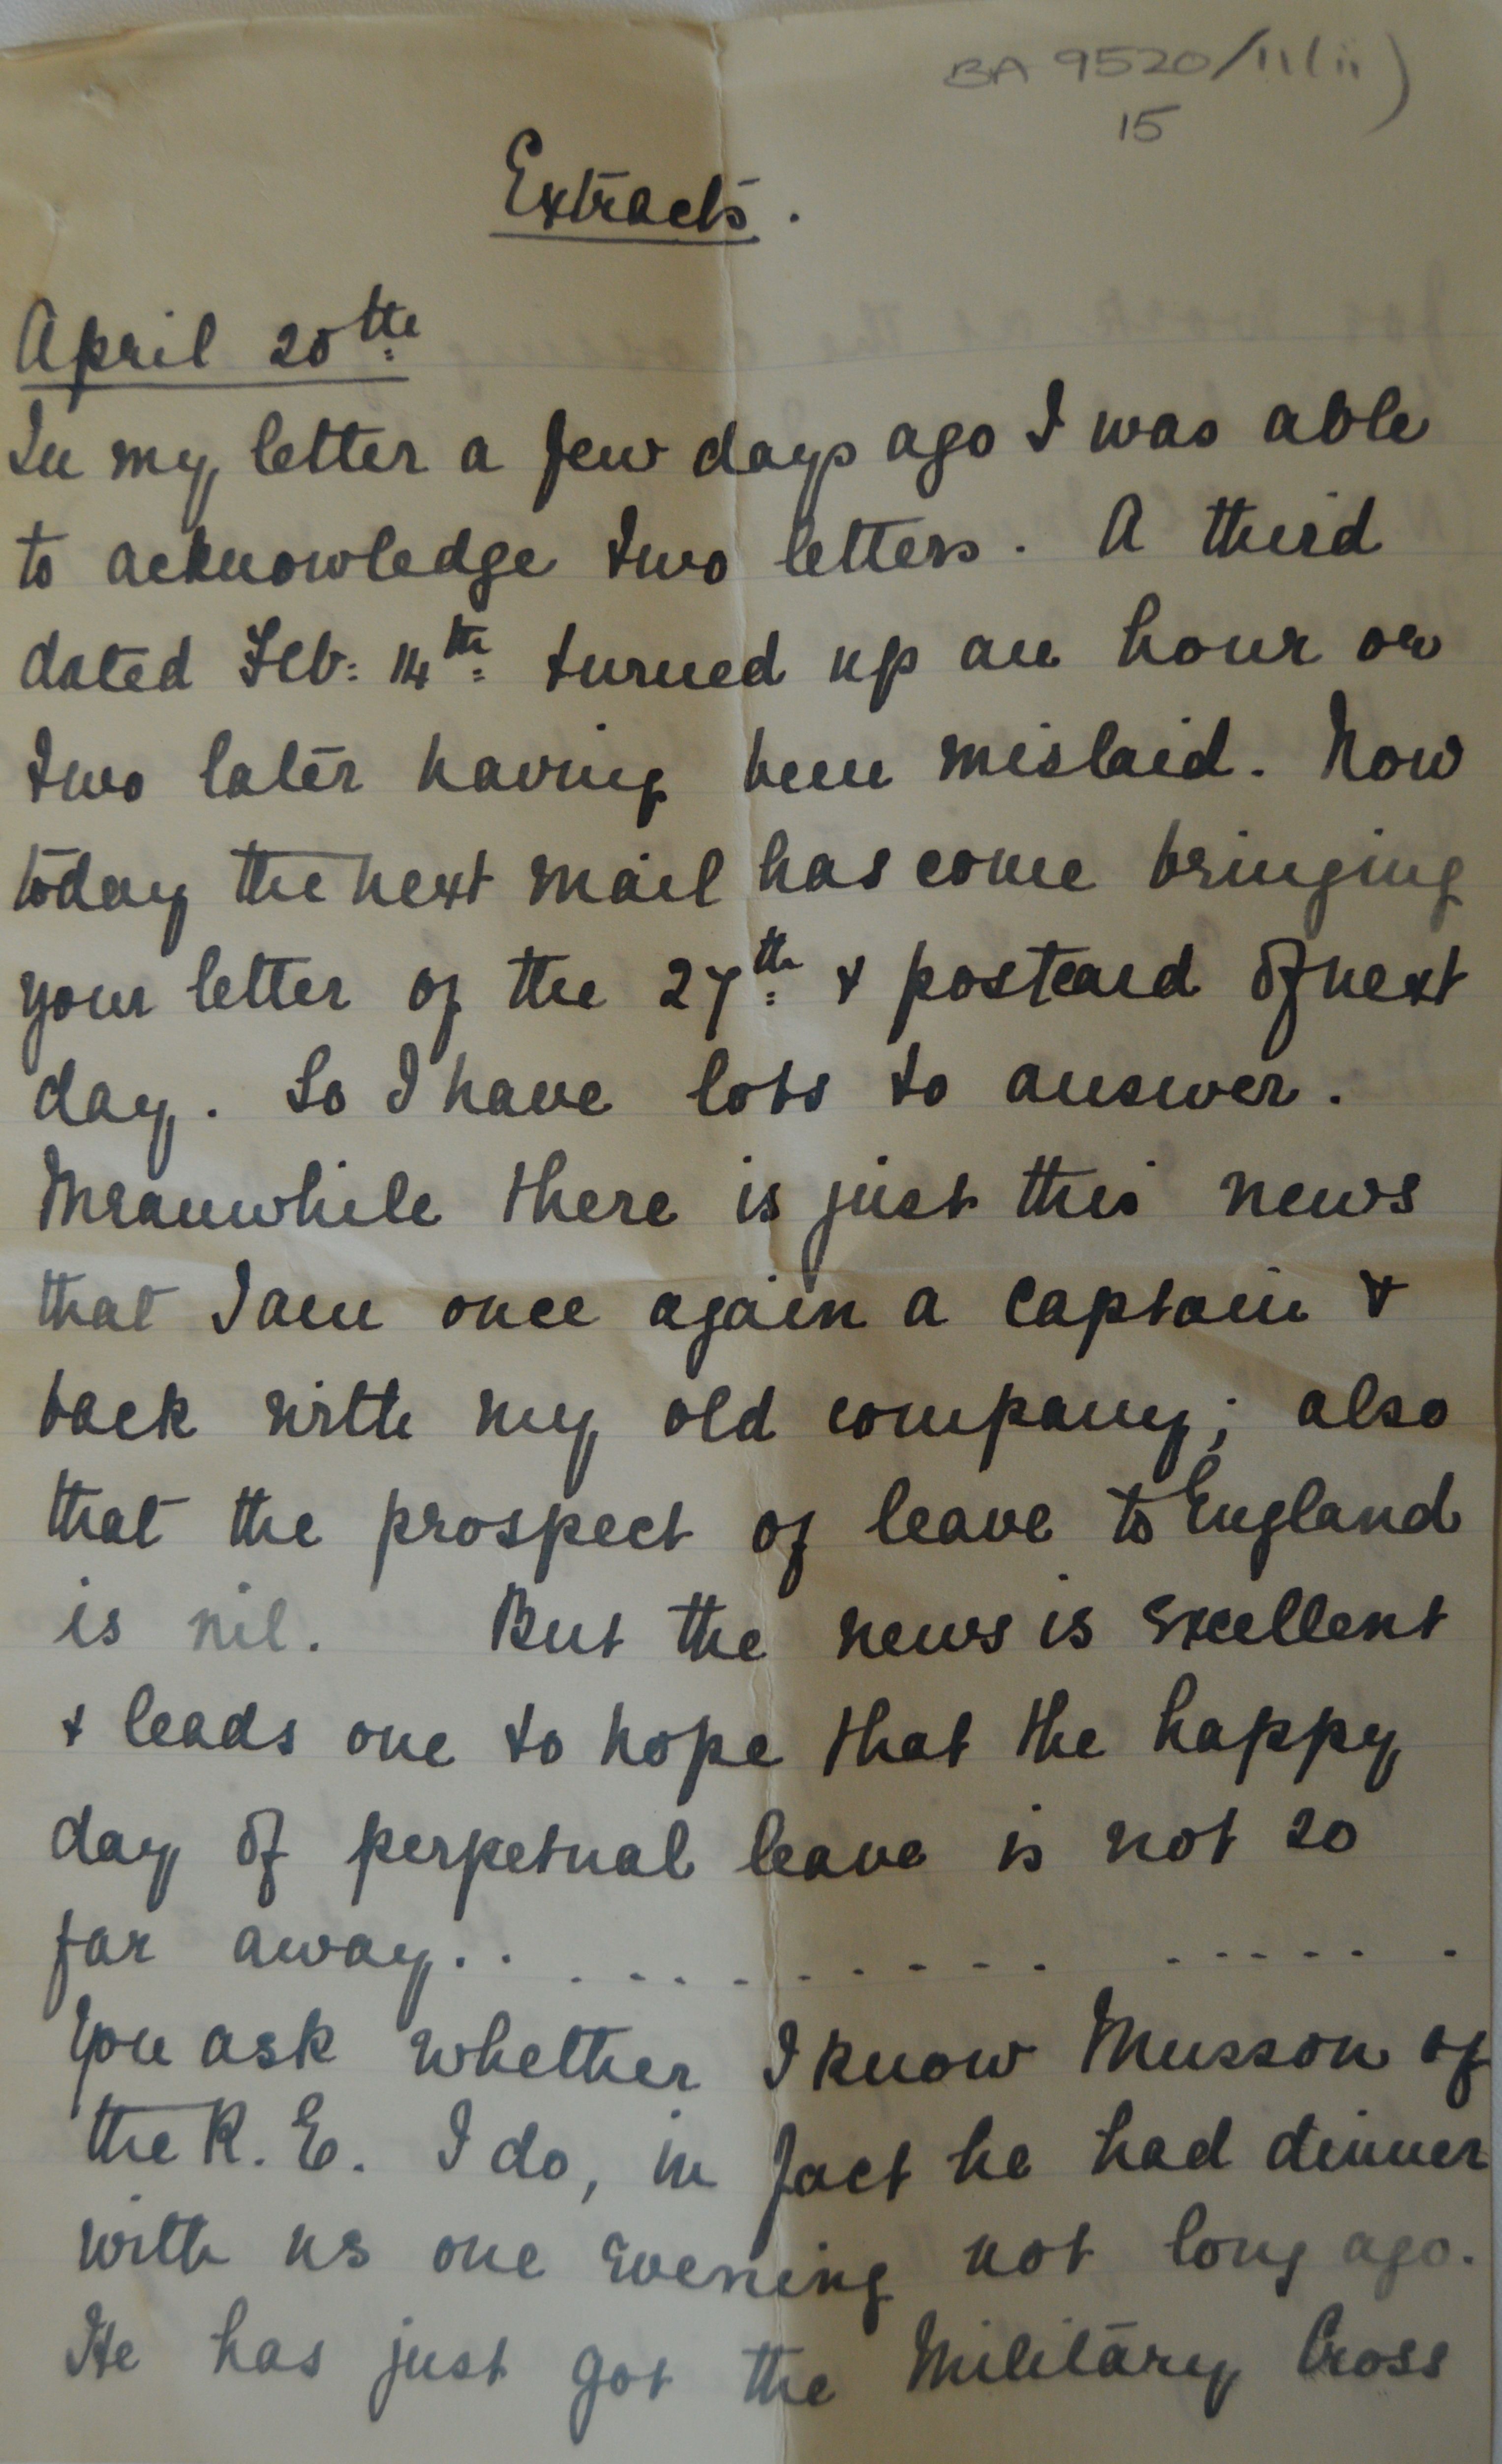 BA 9520/11(ii)
15
Extracts.
April 20th
In my letter a few days ago I was able
to acknowledge two letters. A third
dated Feb: 14th turned up an hour or
two later having been mislaid. Now
today the next mail has come bringing
your letter of the 27th & postcard of next
day. So I have lots to answer.
Meanwhile there is just this news
that I am once again a Captain &
back with my old company; also
that the prospect of leave to England
is nil. But the news is excellent
& leads one to hope that the happy
day of perpetual leave is not so
far away.. . . . . . . . . . . . . . . .
You ask whether I know Musson of
the R.E. I do, in fact he had dinner
with us one evening not long ago.
He has just got the Military Cross